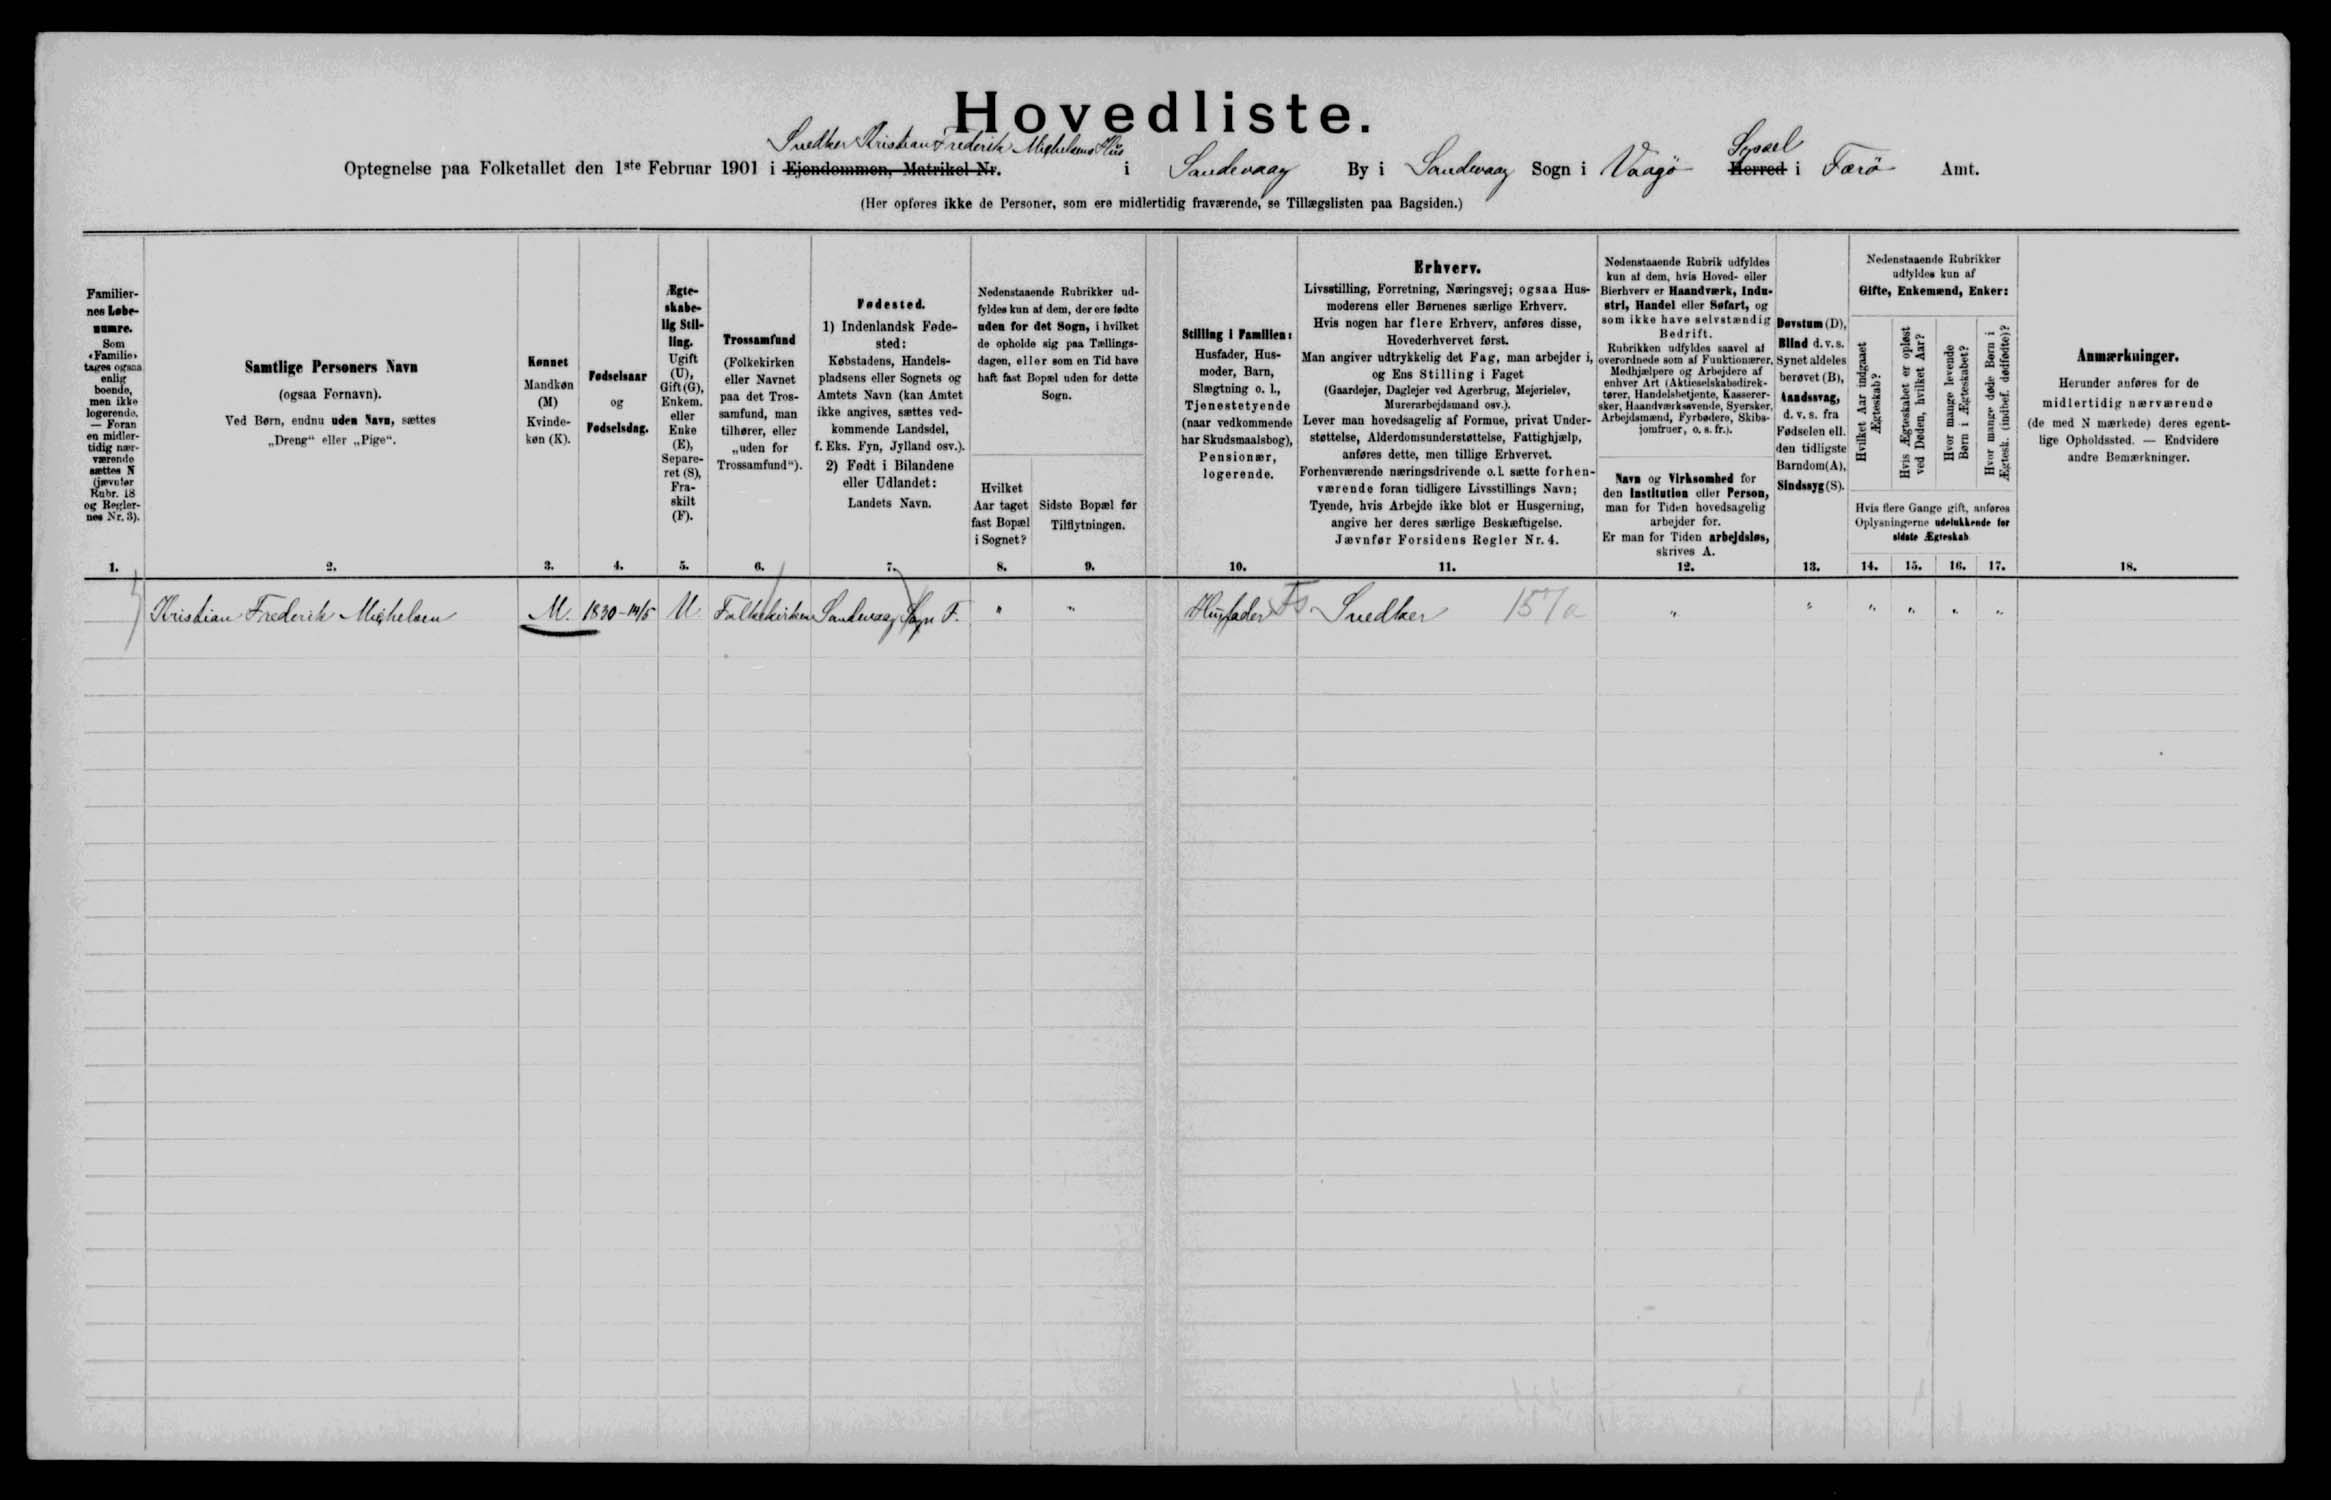 Hovedliste.
Snedker Kristian Frederik Michelsens Hus
Sysael
Optegnelse paa Folketallet den 1ste Februar 1901 i Ejendommen, Matrikel Nr. i Sandevaag By i Sandevaag Sogn i Vaagø Herred i Færø Amt.
(Her opføres ikke de Personer, som ere midlertidig fraværende, se Tillægslisten paa Bagsiden.)
Familier-
nes Løbe-
numre.
Som
«Familie»
tages ogsaa
enlig
boende,
men ikke
logerende.
— Foran
en midler-
tidig nær-
værende
sættes N
(jævnfør
Rubr. 18
og Regler-
nes Nr. 3).
1.
Samtlige Personers Navn
(ogsaa Fornavn).
Ved Børn, endnu uden Navn, sættes
„Dreng“ eller „Pige“.
2.
Kønnet
Mandkøn
(M)
Kvinde-
køn (K).
3.
Fødselsaar
og
Fødselsdag.
4.
Ægte-
skabe-
lig Stil-
ling.
Ugift
(U),
Gift (G),
Enkem.
eller
Enke
(E),
Separe-
ret (S),
Fra-
skilt
(F).
5.
Trossamfund
(Folkekirken
eller Navnet
paa det Tros-
samfund, man
tilhører, eller
„uden for
Trossamfund“).
6.
Fødested.
1) Indenlandsk Føde-
sted:
Købstadens, Handels-
pladsens eller Sognets og
Amtets Navn (kan Amtet
ikke angives, sættes ved-
kommende Landsdel,
f. Eks. Fyn, Jylland osv.).
2) Født i Bilandene
eller Udlandet:
Landets Navn.
7.
Nedenstaaende Rubrikker ud-
fyldes kun af dem, der ere fødte
uden for det Sogn, i hvilket
de opholde sig paa Tællings-
dagen, eller som en Tid have
haft fast Bopæl uden for dette
Sogn.
Hvilket
Aar taget
fast Bopæl
i Sognet?
8.
Sidste Bopæl før
Tilflytningen.
9.
Stilling i Familien:
Husfader, Hus-
moder, Barn,
Slægtning o. l.,
Tjenestetyende
(naar vedkommende
har Skudsmaalsbog),
Pensionær,
logerende.
10.
Erhverv.
Livsstilling, Forretning, Næringsvej; ogsaa Hus-
moderens eller Børnenes særlige Erhverv.
Hvis nogen har flere Erhverv, anføres disse,
Hovederhvervet først.
Man angiver udtrykkelig det Fag, man arbejder i,
og Ens Stilling i Faget
(Gaardejer, Daglejer ved Agerbrug, Mejerielev,
Murerarbejdsmand osv.).
Lever man hovedsagelig af Formue, privat Under-
støttelse, Alderdomsunderstøttelse, Fattighjælp,
anføres dette, men tillige Erhvervet.
Forhenværende næringsdrivende o. l. sætte forhen-
værende foran tidligere Livsstillings Navn;
Tyende, hvis Arbejde ikke blot er Husgerning,
angive her deres særlige Beskæftigelse.
Jævnfør Forsidens Regler Nr. 4.
11.
Nedenstaaende Rubrik udfyldes
kun af dem, hvis Hoved- eller
Bierhverv er Haandværk, Indu-
stri, Handel eller Søfart, og
som ikke have selvstændig
Bedrift.
Rubrikken udfyldes saavel af
overordnede som af Funktionærer,
Medhjælpere og Arbejdere af
enhver Art (Aktieselskabsdirek-
tører, Handelsbetjente, Kasserer-
sker, Haandværkssvende, Syersker,
Arbejdsmænd, Fyrbødere, Skibs-
jomfruer, o. s. fr.).
Navn og Virksomhed for
den Institution eller Person,
man for Tiden hovedsagelig
arbejder for.
Er man for Tiden arbejdsløs,
skrives A.
12.
Døvstum (D),
Blind d. v. s.
Synet aldeles
berøvet (B),
Aandssvag,
d. v. s. fra
Fødselen ell.
den tidligste
Barndom (A),
Sindssyg (S).
13.
Nedenstaaende Rubrikker
udfyldes kun af
Gifte, Enkemænd, Enker:
Hvilket Aar indgaaet
Ægteskab?
Hvis Ægteskabet er opløst
ved Døden, hvilket Aar?
Hvor mange levende
Børn i Ægteskabet?
Hvor mange døde Børn i
Ægtesk. (indbef. dødfødte)?
Hvis flere Gange gift, anføres
Oplysningerne udelukkende for
sidste Ægteskab
14. 15. 16. 17.
Anmærkninger.
Herunder anføres for de
midlertidig nærværende
(de med N mærkede) deres egent-
lige Opholdssted. — Endvidere
andre Bemærkninger.
18.
Kristian Frederik Michelsen M. 1830-14/5 U Folkekirken Sandevaag Sogn F. " " Husfader Fs Snedker 157a " " " " " "